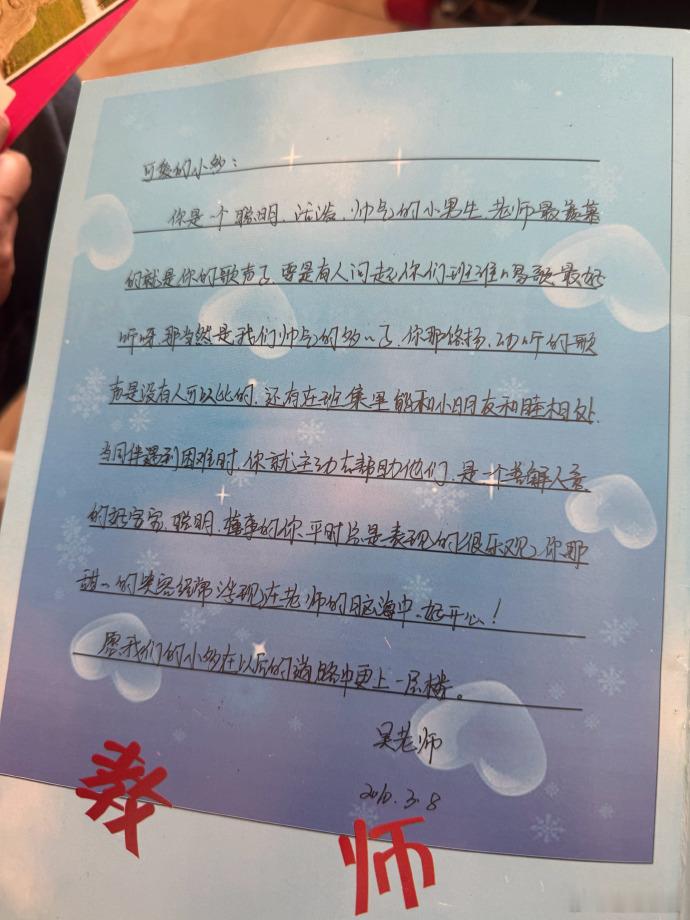 可爱的小纱：
你是一个聪明、活泼、帅气的小男生、老师最羡慕
的就是你的歌声了、要是有人问起你们班谁唱歌最好
听呀、那当然是我们帅气的纱纱了、你那悠扬、动听的歌
声是没有人可以比的、还有在班集里能和小朋友和睦相处、
当同伴遇到困难时、你就主动去帮助他们、是一个善解人意
的好宝宝、聪明、懂事的你、平时总是表现的很乐观、你那
甜甜的笑容经常浮现在老师的脑海中、好开心！
愿我们的小纱在以后的道路中更上一层楼。
吴老师
2010.3.8
教
师